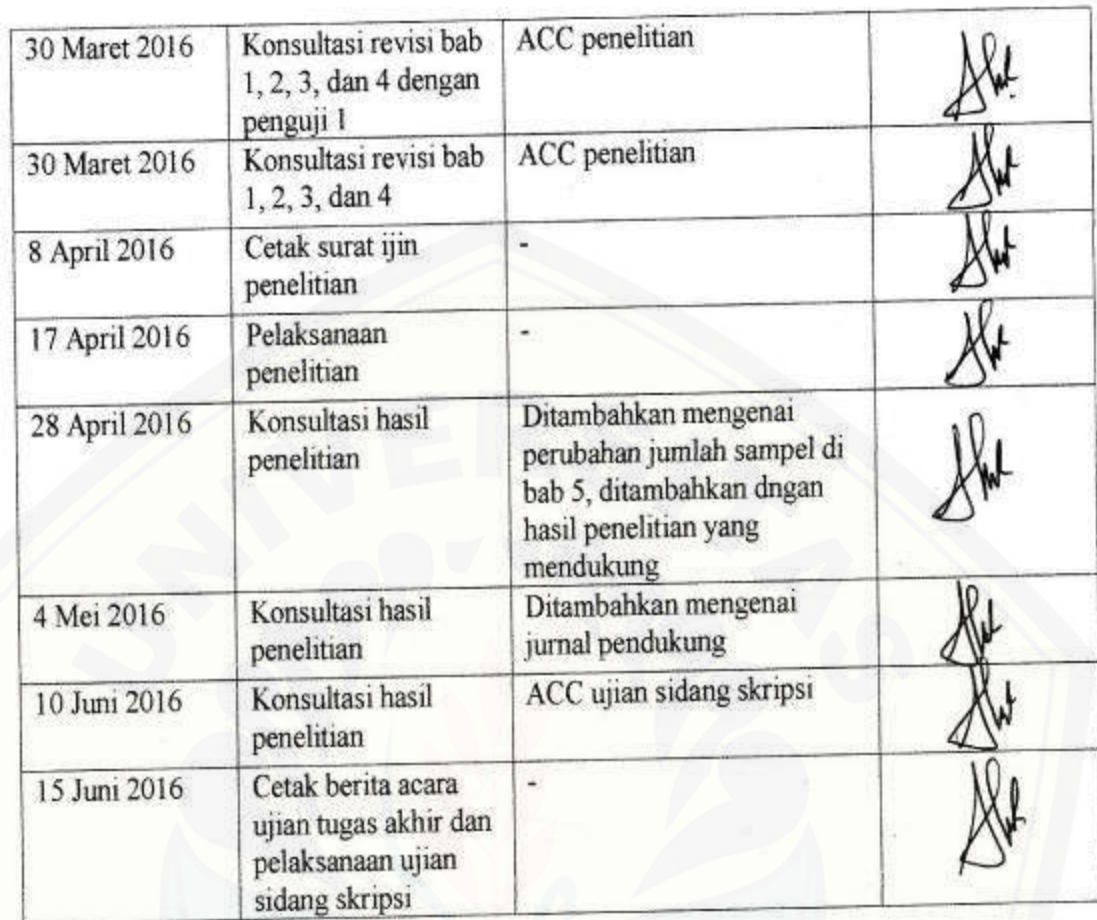 30 Maret 2016
Konsultasi revisi bab
1, 2, 3, dan 4 dengan
penguji 1
ACC penelitian
30 Maret 2016
Konsultasi revisi bab
1, 2, 3, dan 4
ACC penelitian
8 April 2016
Cetak surat ijin
penelitian
-
17 April 2016
Pelaksanaan
penelitian
-
28 April 2016
Konsultasi hasil
penelitian
Ditambahkan mengenai
perubahan jumlah sampel di
bab 5, ditambahkan dngan
hasil penelitian yang
mendukung
4 Mei 2016
Konsultasi hasil
penelitian
Ditambahkan mengenai
jurnal pendukung
10 Juni 2016
Konsultasi hasil
penelitian
ACC ujian sidang skripsi
15 Juni 2016
Cetak berita acara
ujian tugas akhir dan
pelaksanaan ujian
sidang skripsi
-